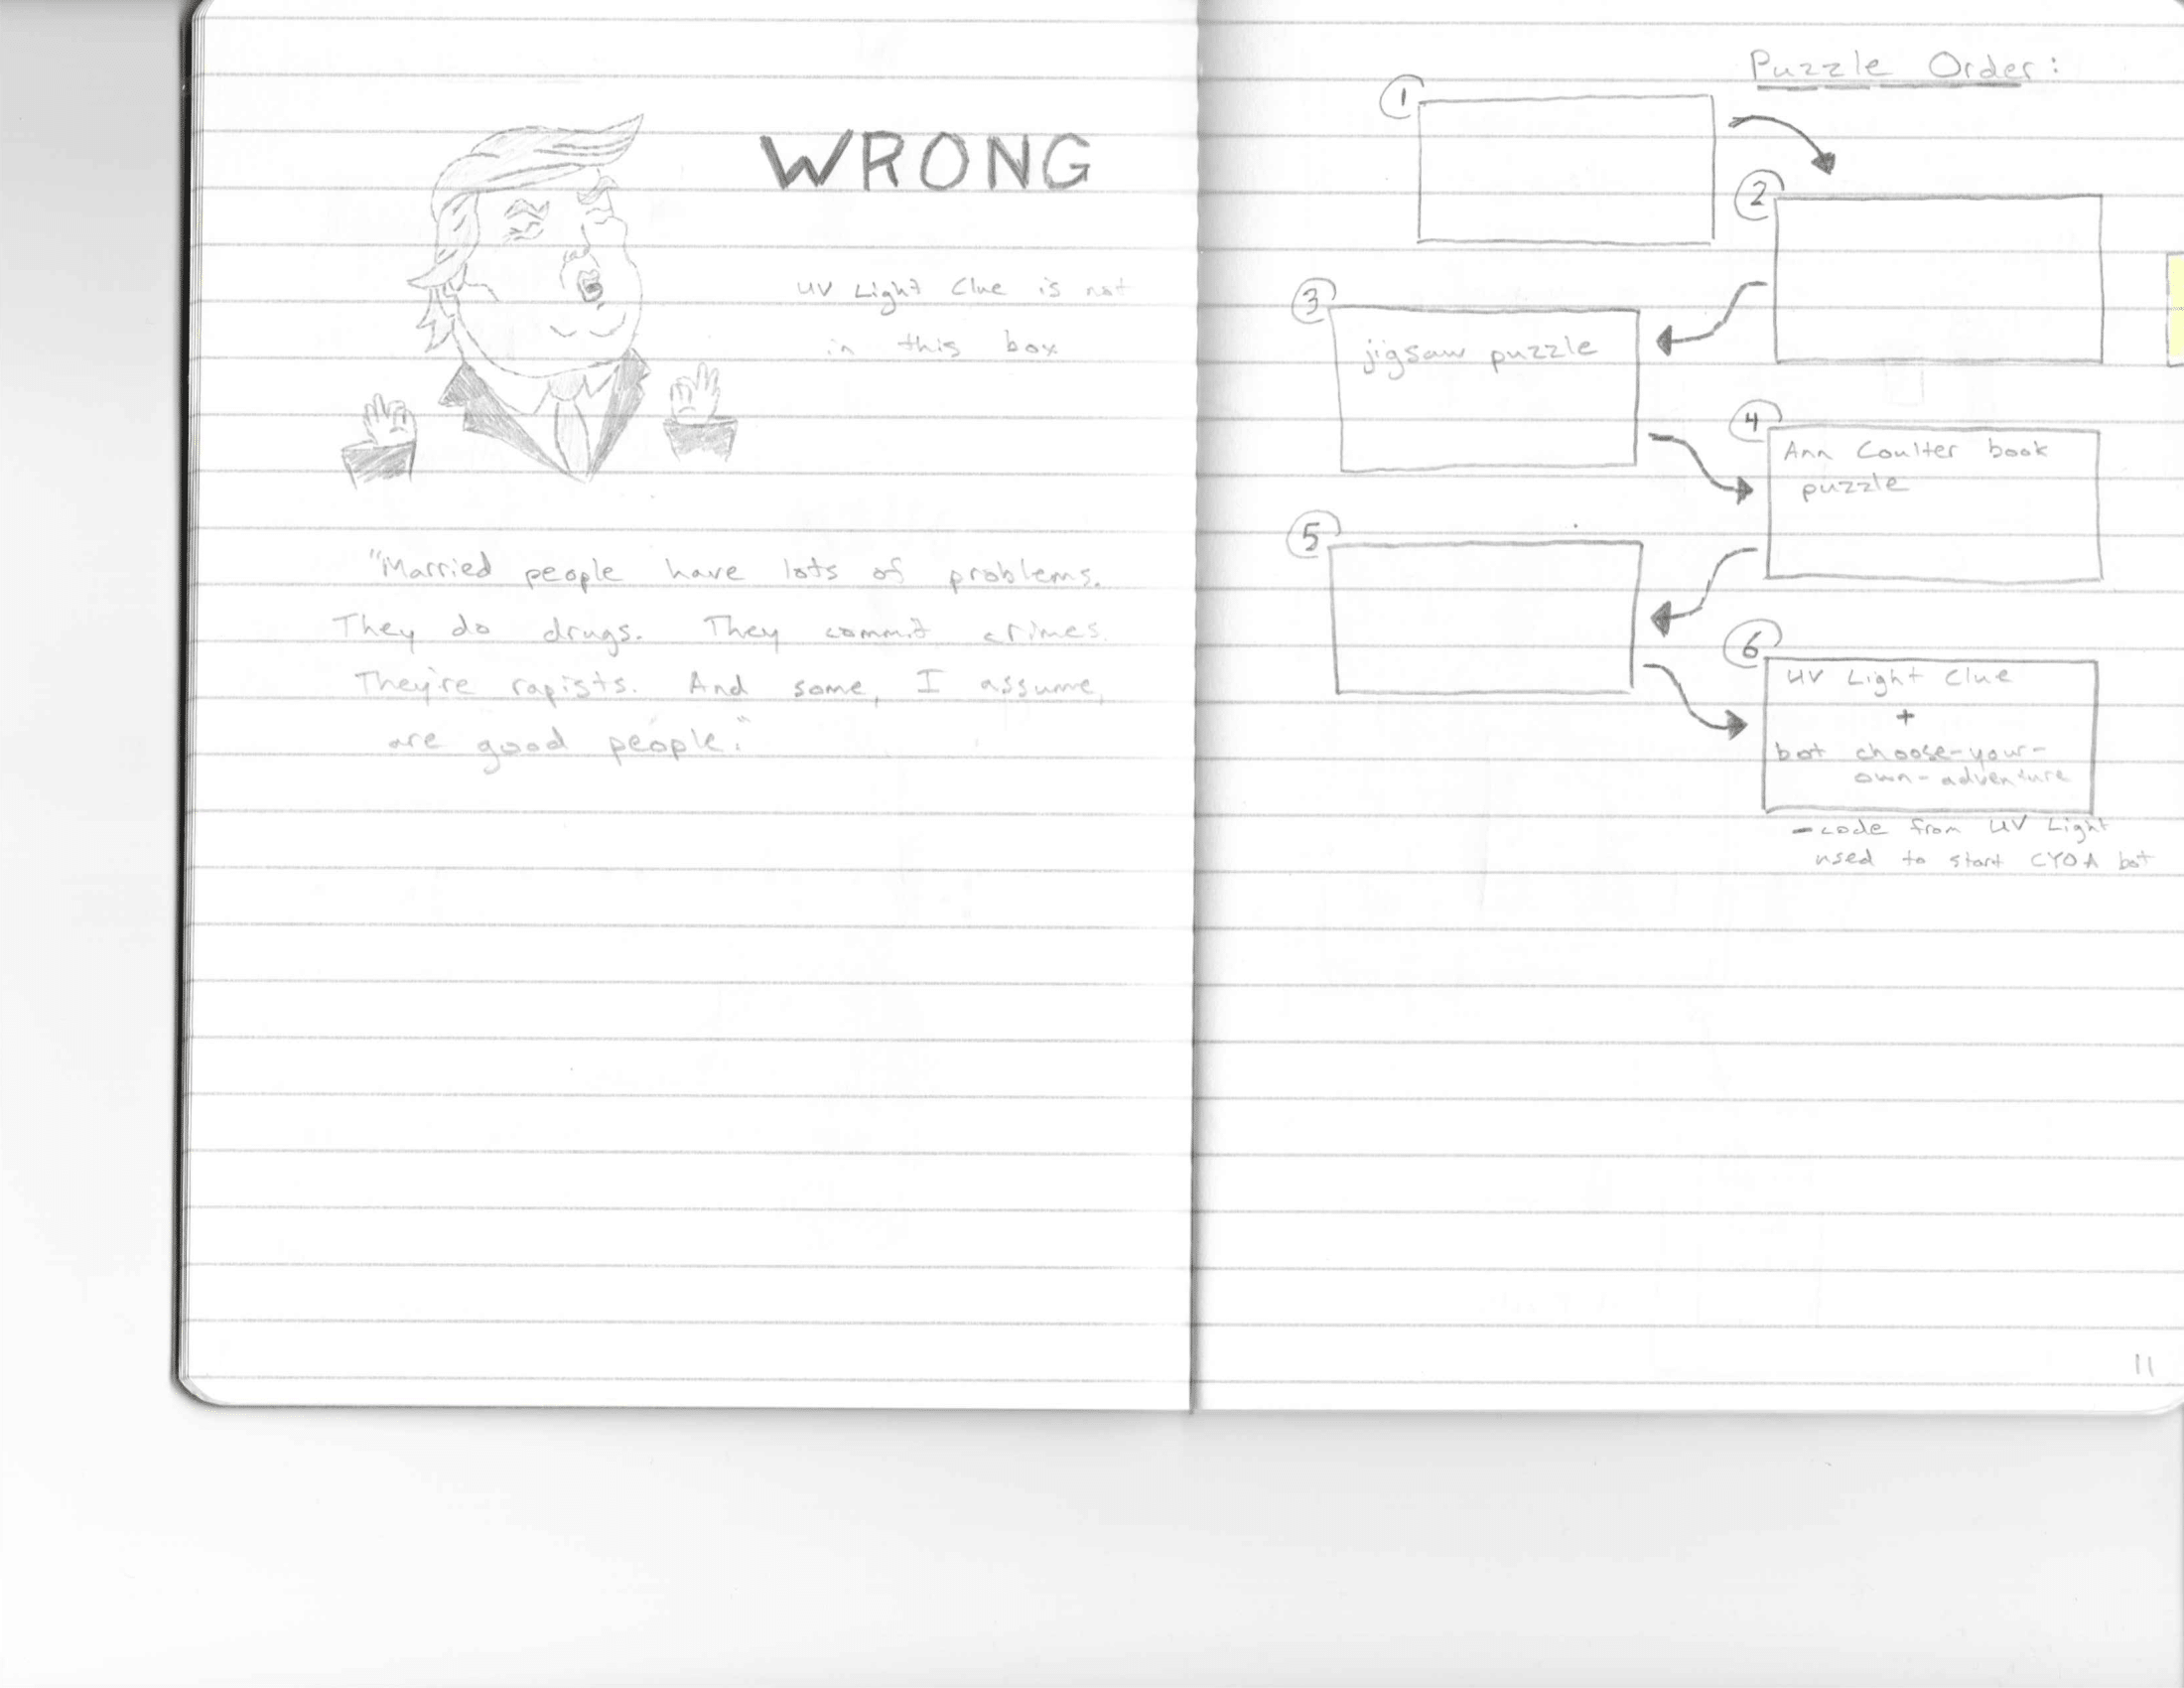 WRONG
UV Light Clue is not
in this box
"Married people have lots of problems.
They do drugs. They commit crimes.
They're rapists. And some, I assume,
are good people."
Puzzle Order:
1
2
3
jigsaw puzzle
4
Ann Coulter book
puzzle
5
6
UV Light Clue
+
bot choose-your-
own-adventure
- code from UV Light
used to start CYOA bot
11